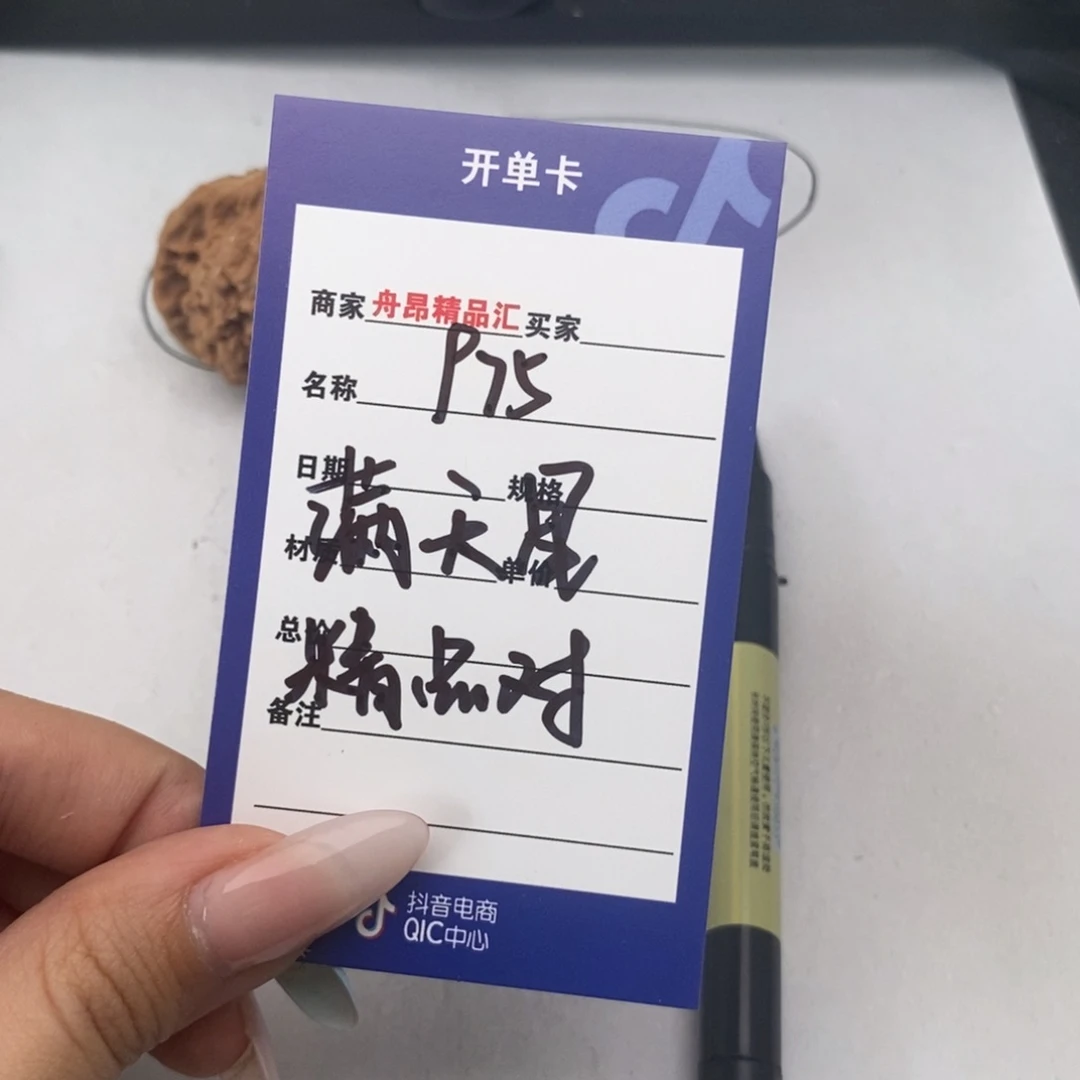 开单卡
商家 舟昂精品汇 买家
P75
名称
日期 规格
满天星
材质 单价
总价
精品对
备注
抖音电商
QIC中心